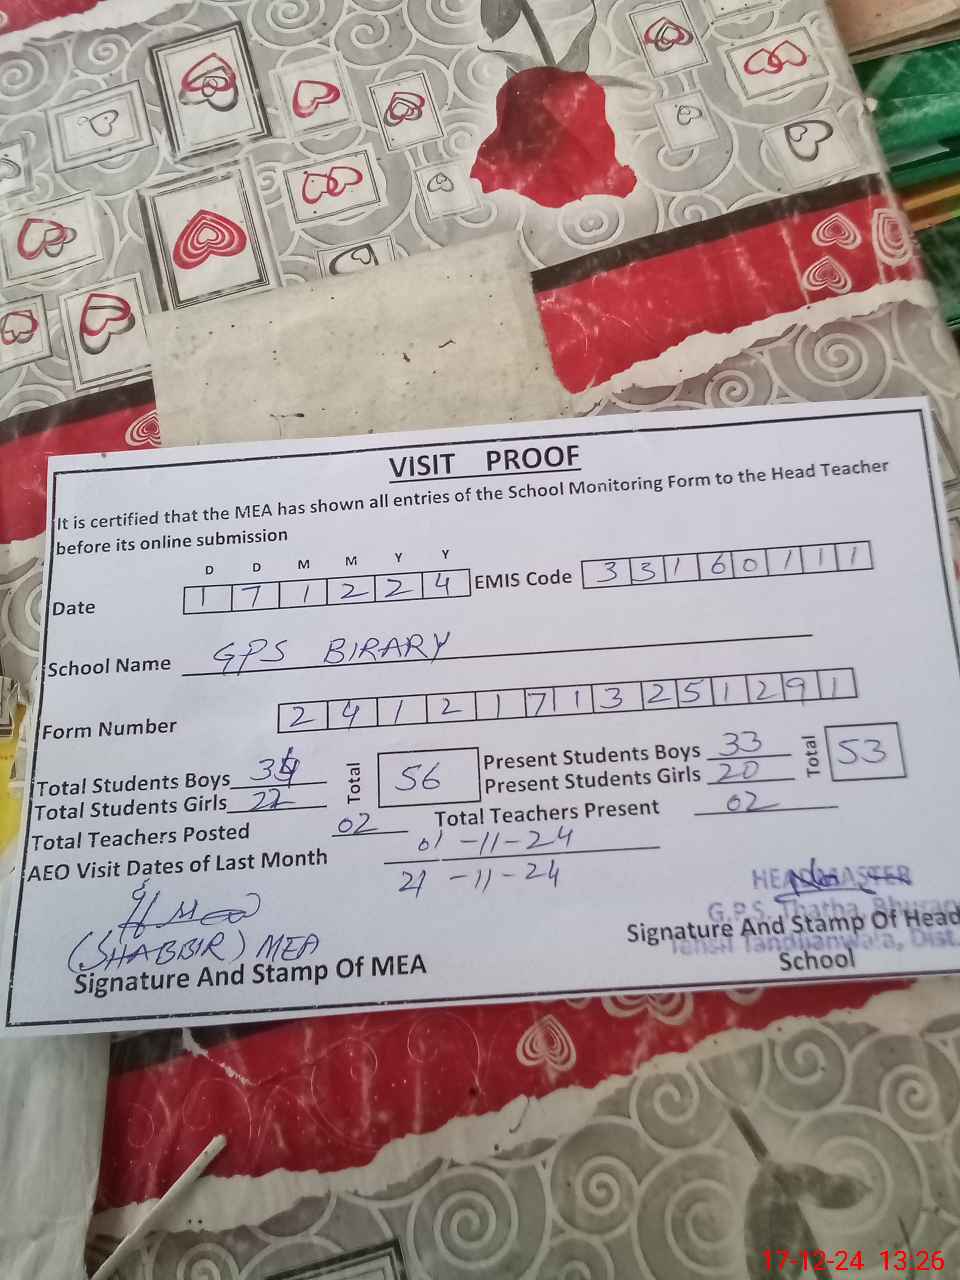 VISIT PROOF
It is certified that the MEA has shown all entries of the School Monitoring Form to the Head Teacher
before its online submission
D D M M Y Y
Date 1 7 1 2 2 4 EMIS Code 3 3 1 6 0 1 1 1
School Name GPS BIRARY
Form Number 2 4 1 2 1 7 1 3 2 5 1 2 9 1
Total Students Boys 34 Total 56 Present Students Boys 33 Total 53
Total Students Girls 22 Present Students Girls 20
Total Teachers Posted 02 Total Teachers Present 02
AEO Visit Dates of Last Month 01-11-24
21-11-24
HEADMASTER
G.P.S. Thatha
Tehsil Tandlianwala, Dist.
(SHABBIR) MEA
Signature And Stamp Of MEA
Signature And Stamp Of Head
School
17-12-24 13:26